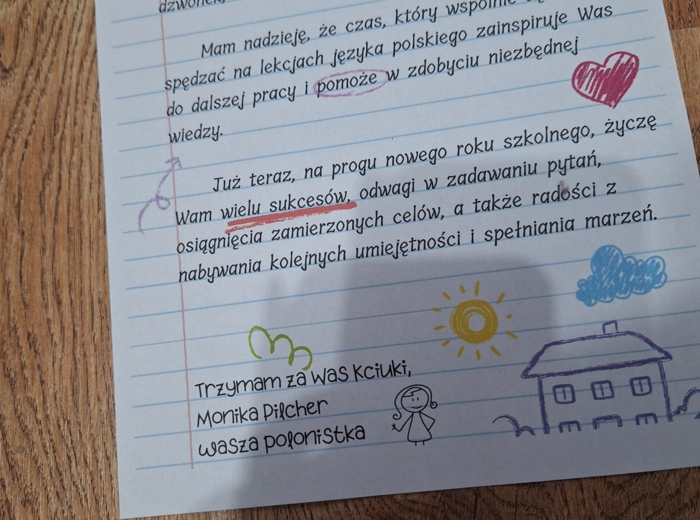 dzwonek,
Mam nadzieję, że czas, który wspólnie
spędzać na lekcjach języka polskiego zainspiruje Was
do dalszej pracy i pomoże w zdobyciu niezbędnej
wiedzy.
Już teraz, na progu nowego roku szkolnego, życzę
Wam wielu sukcesów, odwagi w zadawaniu pytań,
osiągnięcia zamierzonych celów, a także radości z
nabywania kolejnych umiejętności i spełniania marzeń.
Trzymam za was kciuki,
Monika Pilcher
wasza polonistka